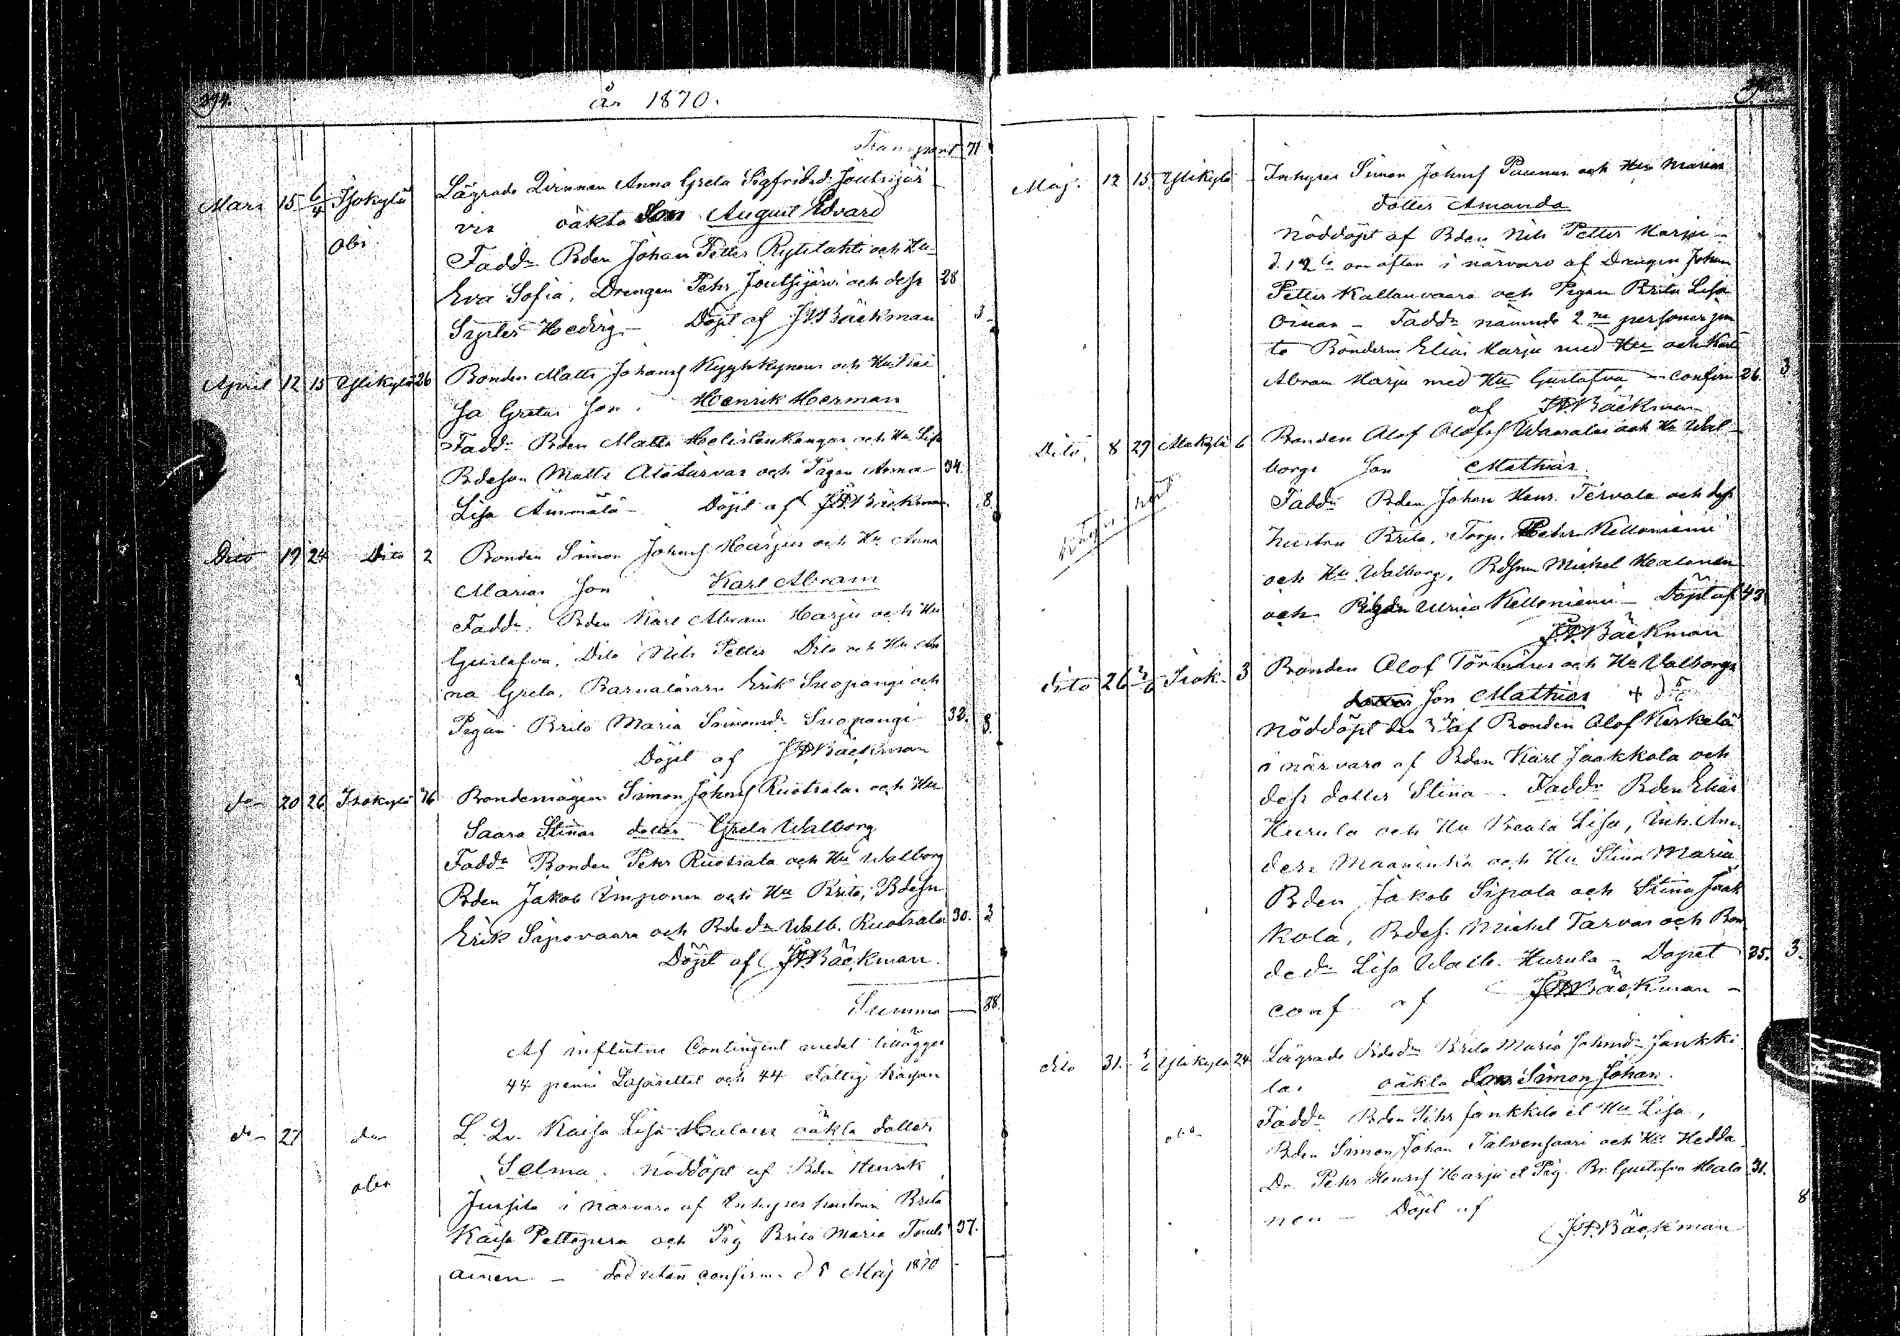 394.
år 1870.
Transport 71
Mars 15 6/4 Isokylä Lägrade Qvinnan Anna Greta Sigfridsd. Joutsijär-
obs. vis oäkta Son August Edvard
Faddr Bden Johan Petter Rytilahti och Hu
Eva Sofia, Drengen Pehr Joutsijärvi och dess 28
Syster Hedvig – Döpt af JWBäckman 3
April 12 15 Ylikylä 26 Bonden Matts Johansf Kyyhkynens och Hu
sa Gretas Son. Henrik Herman
Faddr Bden Matts och Hu Lisa
Bdeson Matts Alatarvas och Pigan Anna 34.
Lisa Ämmälä – Döpt af JWBäckman 8
Dito 19 24 Dito 2 Bonden Simon Johansf Harjus och Hu Anna
Marias Son Karl Abram
Faddr: Bden Karl Abram Harju och Hu
Gustafva, Dito Nils Petter Dito och Hu An
na Greta, Barnaläraren Erik Suopangi och
Pigan Brita Maria Simonsdr Suopangi 32. 3.
Döpt af JWBäckman
do 20 26 Isokylä 76 Bondemågen Simon Johansf Ruotsalas och Hu
Saara Stinas dotter Greta Walborg
Faddr Bonden Pehr Ruotsala och Hu Walborg
Bden Jakob Imponen och Hu Brita, Bdesn
Erik Sipovaara och Bdedr Walb. Ruotsala 30. 3
Döpt af JWBäckman.
Summa — 88.
Af influtne Contingent medel tillägges
44 penni Lasarettet och 44 Fattig kassan
do 27 do L. Qv. Kaisa Lisa oäkta dotter
obs Selma. nöddöpt af Bden Henrik
Jussila i närvaro af Inhyses hustrun Brita
Kaisa och Pig Brita Maria 37.
ainen – Död utan confirm. d 5 Maj 1870
395.
Maj. 12 15 Ylikylä – Inhyses Simon Johansf Paunus och Hus Marias
dotter Amanda
Nöddöpt af Bden Nils Petter Harju –
d. 12te om aftan i närvaro af Drengen Johan
Petter Kallanvaara och Pigan Brita Lisa
Oinas – Faddr nämnde 2ne personer jem
te Bönderne Elias Harju med Hu och Karl
Abram Harju med Hu Gustafva – confirm 26. 3
af JWBäckman
Dito. 8 29 6 Bonden Olof Olofsf Waaralas och Hu Wal-
borgs Son Mathias.
Faddr Bden Johan Henr. Tervala och dess
hustru Brita, Torp. Pehr Kelloniemi
och Hu Walborg, Bdsonen Michel Hatanen
och Pigan Ulrica Kelloniemi – Döpt af 43
JWBäckman
dito 26 2/6 Isok. 3 Bonden Olof Törmänes och Hu Valborgs
dotter Son Mathias +
Nöddöpt den af Bonden Olof Kerkelä
i närvaro af Bden Karl Jaakkola och
dess dotter Stina – Faddr Bden Elias
Hurula och Hu Beata Lisa, Inh. An-
ders Maaninka och Hu Stina Maria
Bden Jakob Sipola och Stina Jaak
kola, Bdes. Michel Tarvas och Bon
dedr Lisa Walb. Hurula – Döpet 35. 3.
conf. af JWBäckman –
dito 31. Ylikylä 24. Lägrade Bdedr Brita Maria Johansdr Jankki
las oäkta Son Simon Johan.
Faddr Bden Pehr Jankkila et Hu Lisa,
obs Bden Simon Johan Talvensaari och Hu Hedda
Dr. Pehr Henrsf Harju et Pig. Br. Gustafva Hata 31.
nen – Döpt af 8
JWBäckman